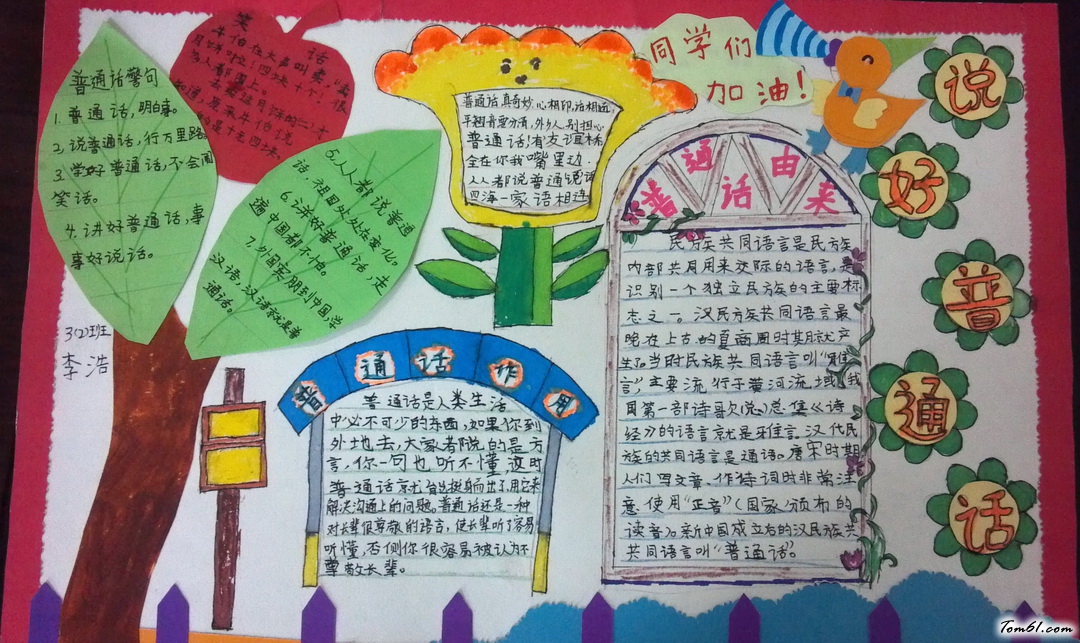 普通话警句
1. 普通话,明白事。
2. 说普通话,行万里路
3. 学好普通话,不会闹
笑话。
4. 讲好普通话,事
事好说话。
5. 人人都说普通
话,祖国处处在变化。
6. 讲好普通话,走
遍中国都不怕。
7. 外国宾朋到中国,学
汉语,汉语就是普
通话。
3(2)班
李浩
笑 话
普通话真奇妙心相印话相通
普通话,有友谊桥
全在你我嘴里边.
人人都说普通话
四海一家语相连
同学们
加油!
普通话作用
普通话是人类生活
中必不可少的东西,如果你到
外地去,大家都说的是方
言,你一句也听不懂,这时
普通话就会挺身而出了,用它来
解决沟通上的问题。普通话还是一种
对长辈很尊敬的语言,使长辈听了容易
听懂,否侧你很容易被认为不
尊敬长辈。
普通话由来
民族共同语言是民族
内部共同用来交际的语言,是
识别一个独立民族的主要标
志之一。汉民族共同语言最
晚在上古的夏商周时期就产
生了,当时民族共同语言叫“雅
言”,主要流行于黄河流域,我
国第一部诗歌总集《诗
经》的语言就是雅言。汉代民
族的共同语言是通语。唐宋时期
人们写文章、作诗词时非常注
意使用“正音”(国家颁布的
读音)。新中国成立后的汉民族共
共同语言叫“普通话”。
说
好
普
通
话
Tom61.com